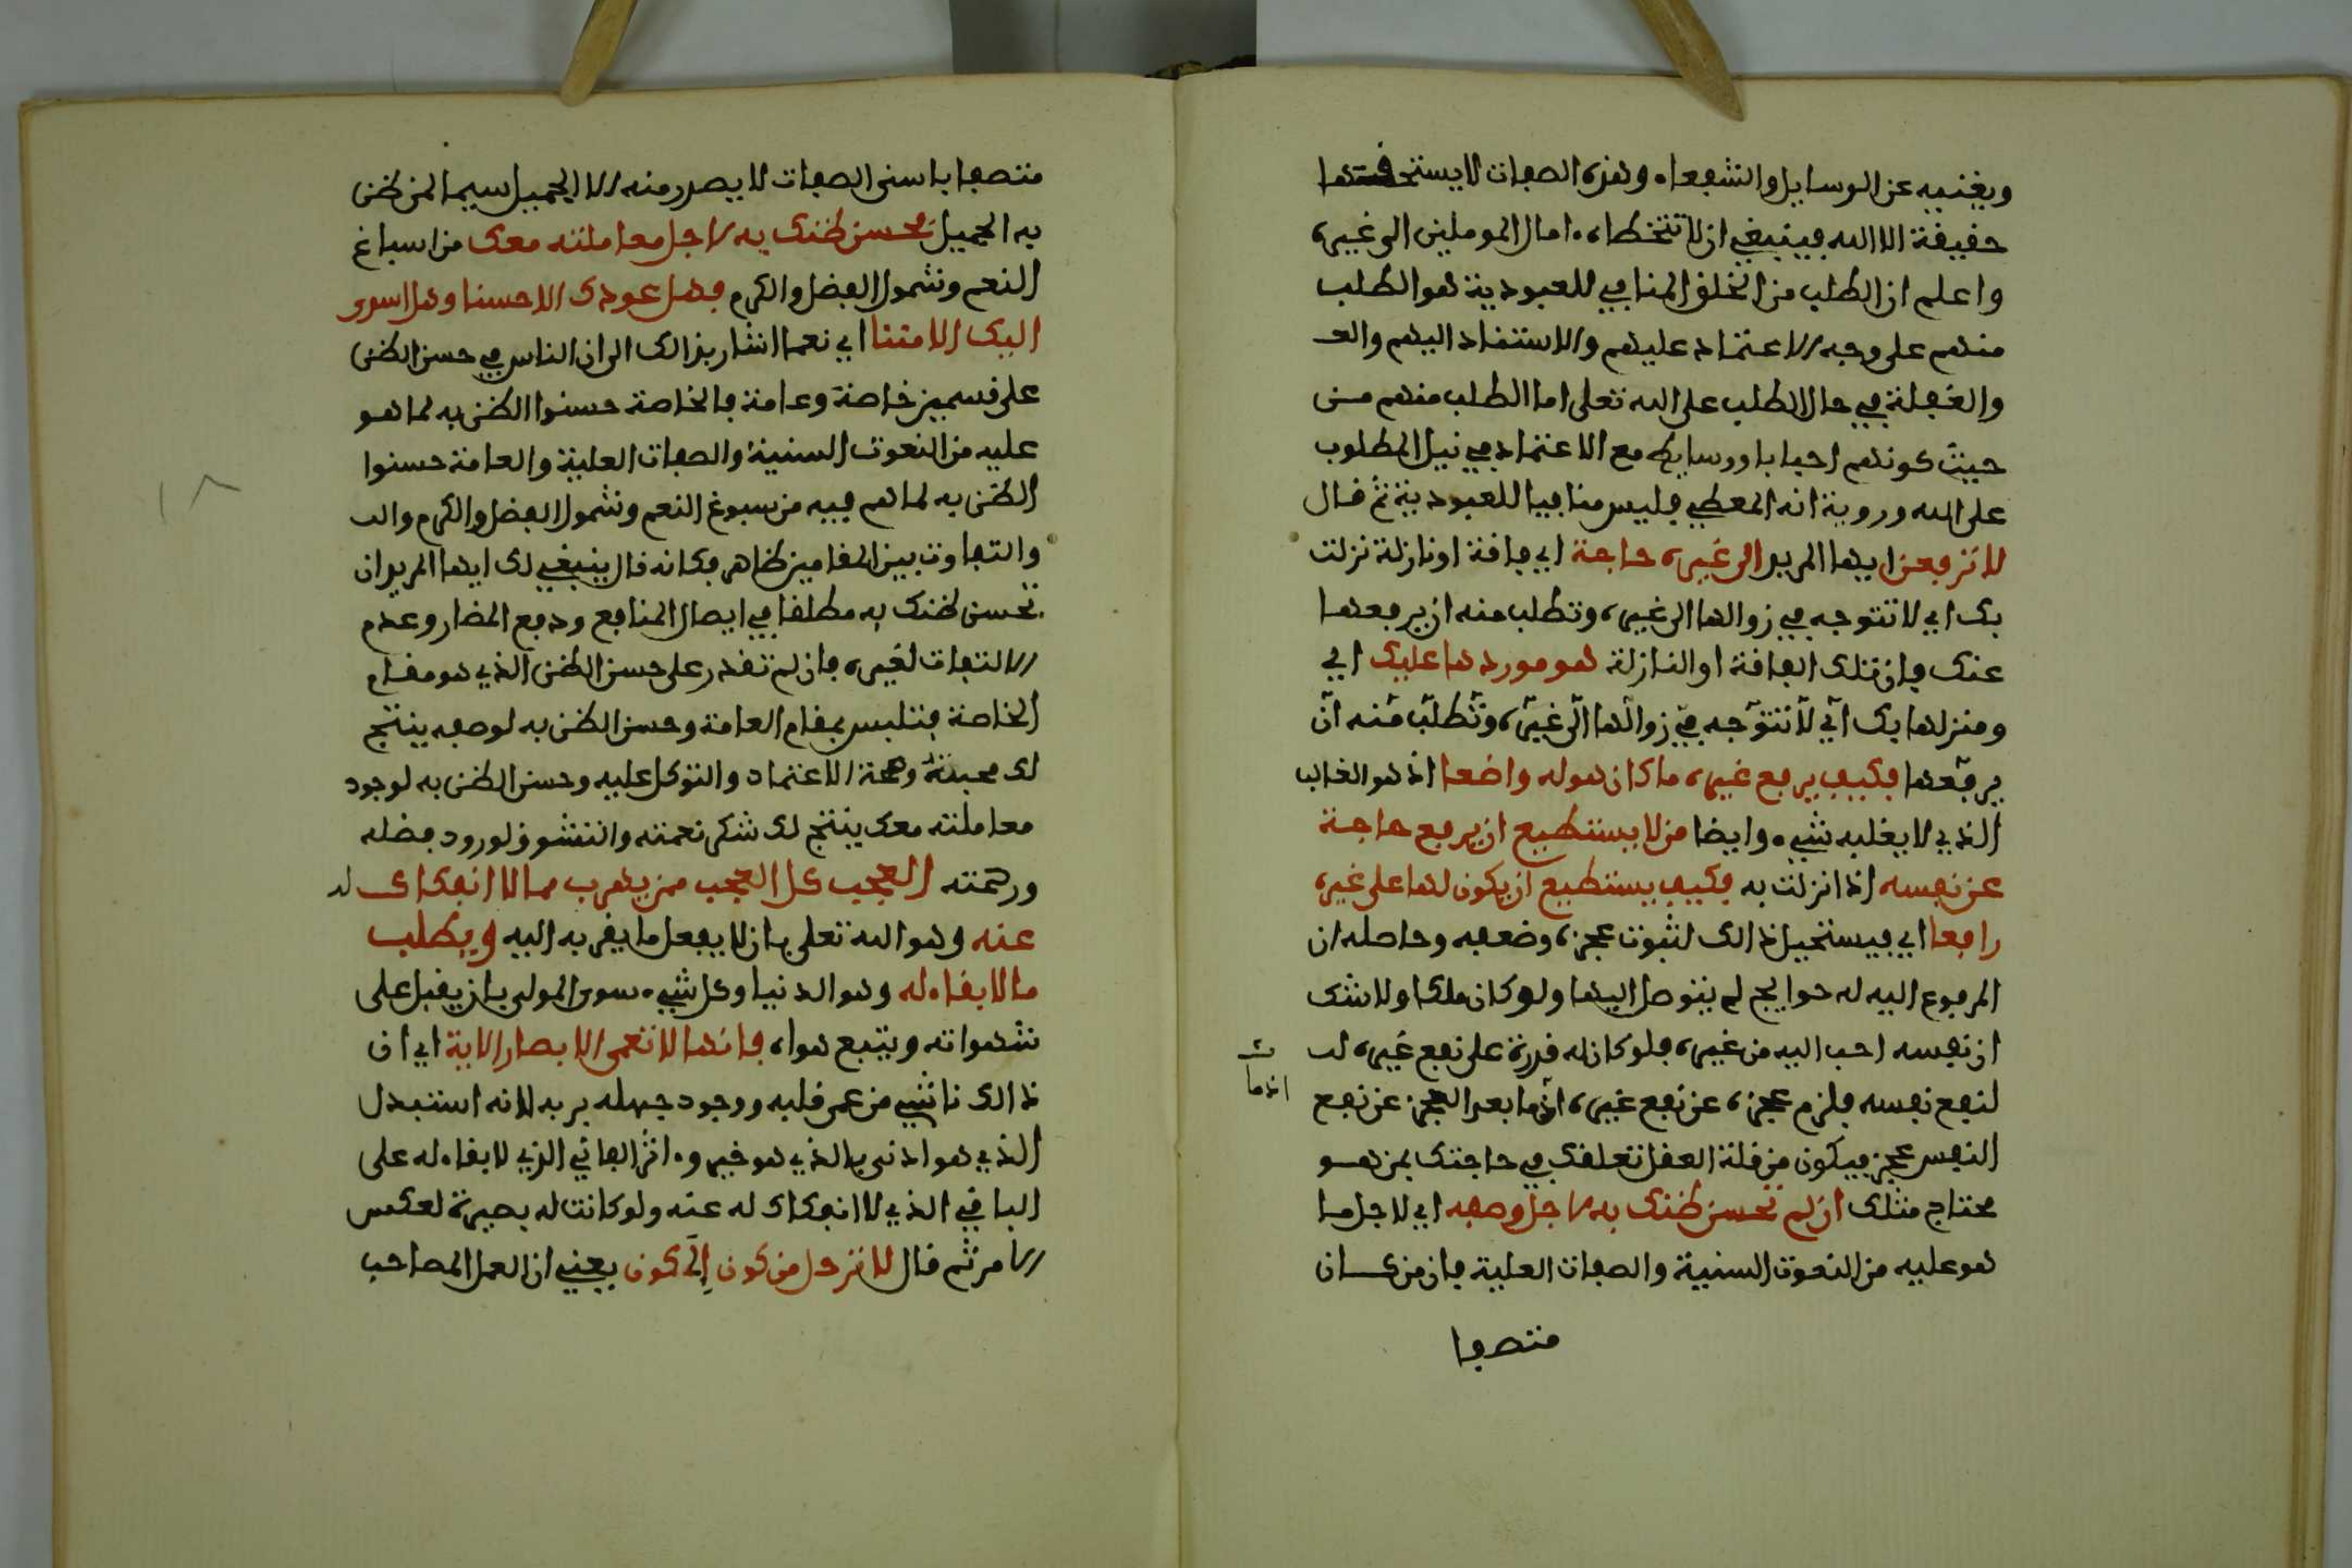 ويغنيه عن الوسايل والشفعاء وهذه الصفات لا يستحقها
حقيقة الا الله فينبغي ان لا تتخطاه ءامال المؤملين الى غيره
واعلم ان الطلب من الخلق المنافي للعبودية هو الطلب
منهم على وجه الاعتماد عليهم والاستناد اليهم والغـ
والغفلة في حال الطلب على الله تعلى اما الطلب منهم من
حيث كونهم اسبابا ووسايط مع الاعتماد في نيل المطلوب
على الله وروية انه المعطي فليس منافيا للعبودية ثم قال
لا ترفعن ايها المريد الى غيره حاجة اي فاقة او نازلة نزلت
بك اي لا تتوجه في زوالها الى غيره وتطلب منه ان يرفعها
عنك فان تلك الفاقة او النازلة هو موردها عليك اي
ومنزلها بك اي لا تتوجه في زوالها الى غيره وتطلب منه ان
يرفعها فكيف يرفع غيره ما كان هو له واضعا اذ هو الغالب
الذي لا يغلبه شيء وايضا من لا يستطيع ان يرفع حاجة
عن نفسه اذا نزلت به فكيف يستطيع ان يكون لها على غيره
رافعا اي فيستحيل ذالك لثبوت عجزه وضعفه وحاصله ان
المرفوع اليه له حوايج لم يتوصل اليها ولو كان ملكا ولا شك
ان نفسه احب اليه من غيره فلو كان له قدرة على نفع غيره لـ
لنفع نفسه فلزم عجزه عن نفع غيره اذ ما بعد العجز عن نفع
اذ ما
النفس عجز فيكون من قلة العقل تعلقك في حاجتك بمن هو
محتاج مثلك ان لم تحسن ظنك به لاجل وصفه اي لاجل ما
هو عليه من النعوت السنية والصفات العلية فان من كان
متصفا
متصفا باسنى الصفات لا يصدر منه الا الجميل سيما لمن ظن
به الجميل فحسن ظنك به لاجل معاملته معك من اسباغ
النعم وشمول الفضل والكرم فهل عودك الا حسنا وهل اسدى
اليك الا مننا اي نعما اشار بذالك الى ان الناس في حسن الظن
على قسمين خاصة وعامة فالخاصة حسنوا الظن به لما هو
عليه من النعوت السنية والصفات العلية والعامة حسنوا
الظن به لما هم فيه من سبوغ النعم وشمول الفضل والكرم والتـ
والتفاوت بين المقامين ظاهر فكانه قال ينبغي لك ايها المريد ان
تحسن ظنك به مطلقا في ايصال المنافع ودفع المضار وعدم
الالتفات لغيره فان لم تقدر على حسن الظن الذي هو مقام
الخاصة فتلبس بمقام العامة وحسن الظن به لوصفه ينتج
لك محبته وصحة الاعتماد والتوكل عليه وحسن الظن به لوجود
معاملته معك ينتج لك شكر نعمته والتشوف لورود فضله
ورحمته العجب كل العجب ممن يهرب مما لا انفكاك له
عنه وهو الله تعلى بان لا يفعل ما يقربه اليه ويطلب
ما لا بقاء له وهو الدنيا وكل شيء سوى المولى بان يقبل على
شهواته ويتبع هواه فانها لا تعمى الابصار الاية اي ان
ذالك ناشي من عمى قلبه ووجود جهله بربه لانه استبدل
الذي هو ادنى بالذي هو خير وءاثر الفاني الذي لا بقاء له على
الباقي الذي لا انفكاك له عنه ولو كانت له بصيرة لعكس
الامر ثم قال لا ترحل من كون الى كون يعني ان العمل المصاحب